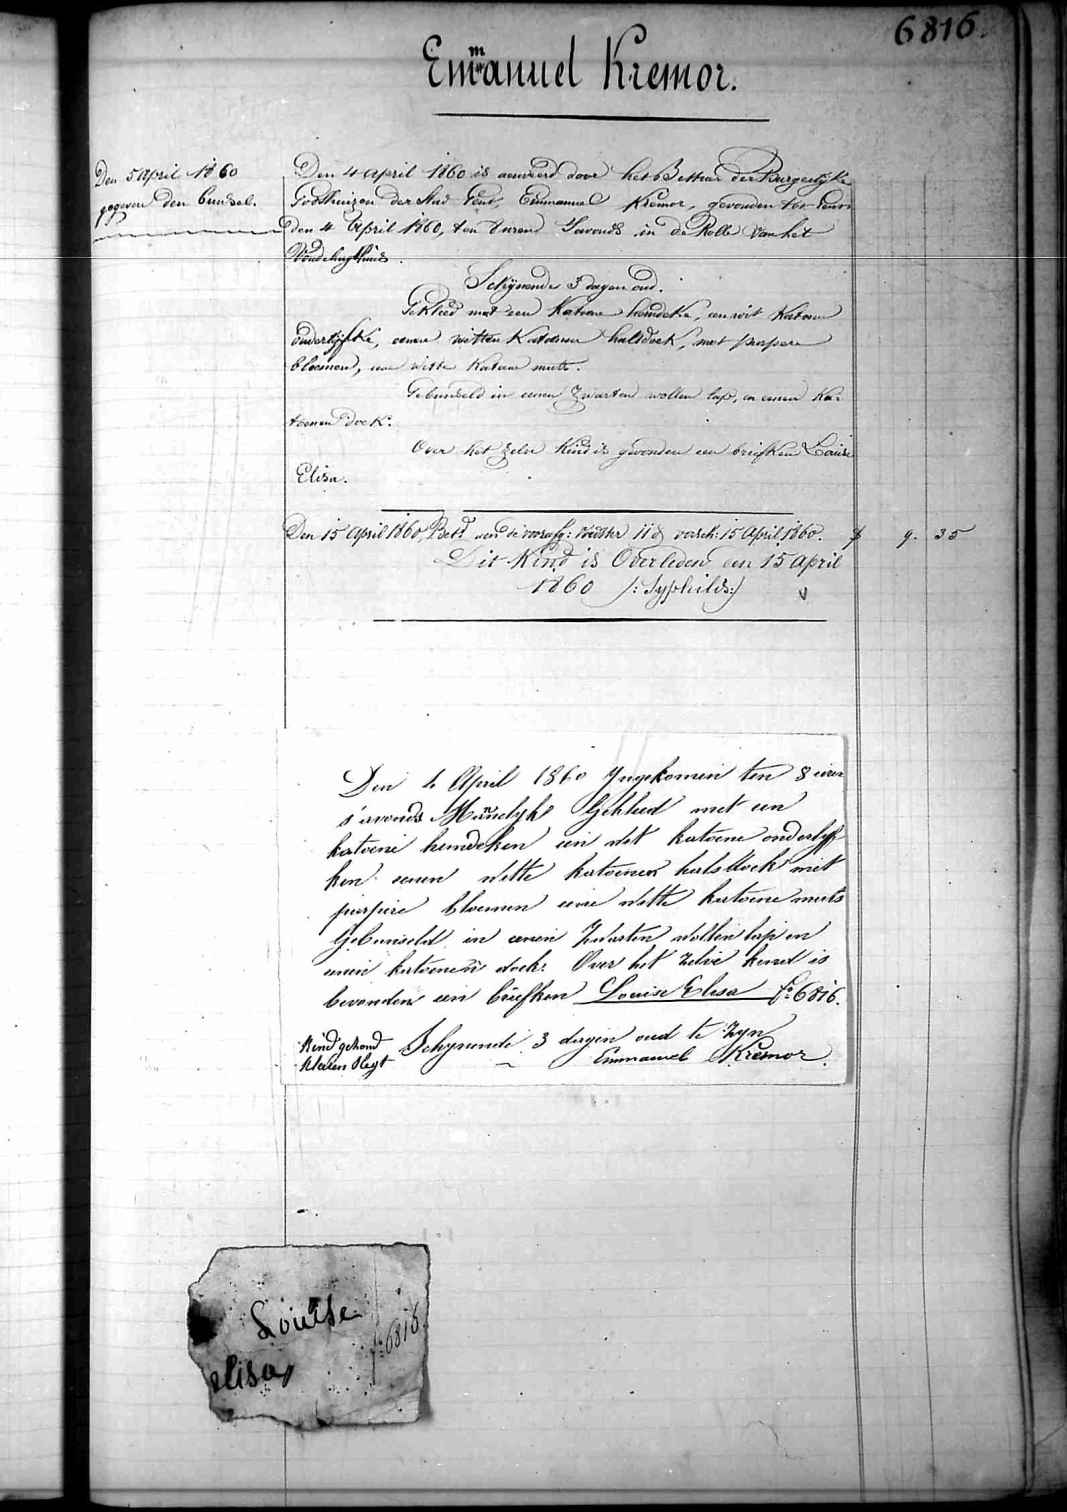 6816.
Emmanuel Kremor.
Den 5 April 1860
gegeven den bunsel.
Den 4 April 1860 is aenveerd door het Bestuur der Burgerlyke
Godshuizen der Stad Gent, Emmanuel Kremor, gevonden ter
den 4 April 1860, ten 8 urend s'avonds in de Rolle van het
Vondelinghuis.
Schynende 3 dagen oud.
Gekleed met een Katoene hemdeke, een wit Katoen
onderlyfke, eenen witten Katoenen halsdoek, met purpere
bloemen, eene witte Katoene muts.
Gebunseld in eenen zwarten wollen lap, en eenen Ka-
toenen doek.
Over het zelve Kind is gevonden een briefken Louise
Elisa.
Den 15 April 1860, Bet.d aen de voedster 11 d. 15 April 1860. 9. 35
Dit Kind is Overleden den 15 April
1860 /: Syphilis :/
Den 4 April 1860 Yngekomen ten 8 uren
s'avonds Mannelyk Gekleed met een
katoene hemdeken een wit katoene onderlyf
ken eenen witte katoenen halsdoek met
purpere bloemen eene witte katoene muts
Gebunseld in eenen Zwarten wollen lap en
eenen katoenen doek. Over het zelve kend is
bevonden een briefken Louise Elisa f° 6816.
Schynende 3 dagen oud te zyn
Kind gezond Emmanuel Kremor.
Louise
elisa
f° 6816